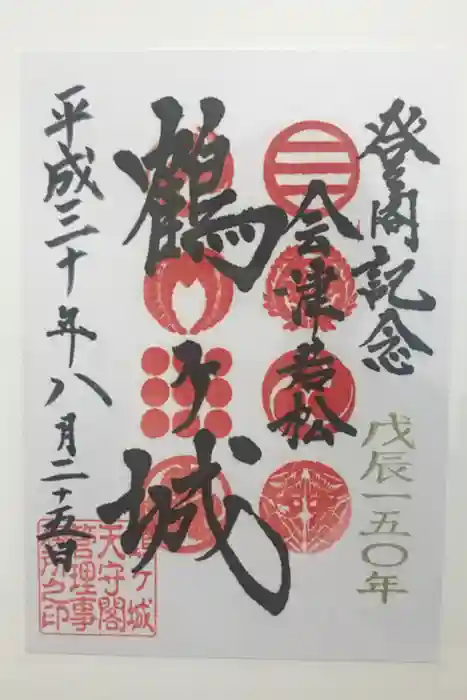 登閣記念
戊辰一五〇年
会津若松
鶴ヶ城
平成三十年八月二十五日
鶴ヶ城
天守閣
管理事
務所之印